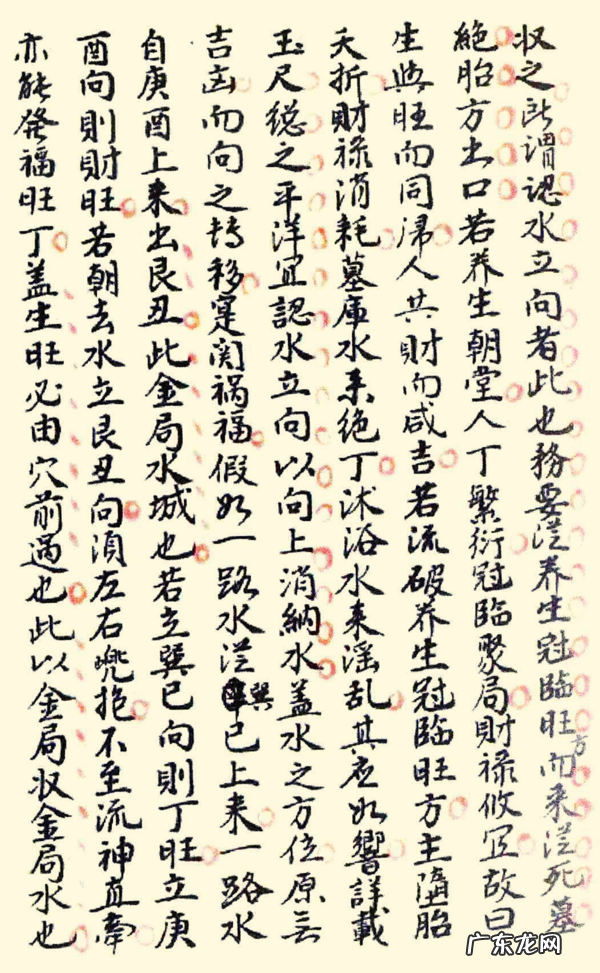 収之所謂認水立向者此也務要從养生冠临旺方而来從死墓
絶胎方出口若养生朝堂人丁繁衍冠临聚局財禄攸宜故曰
生與旺而同㷌人共財而咸吉若流破养生冠临旺方主随胎
夭折財禄消耗墓庫水来绝丁沐浴水来滛乱其应如響詳載
玉尺總之平洋宜認水立向以向上消納水盖水之方位原无
吉凶而向之转移寔関祸福假如一路水從巽巳上来一路水
自庚酉上来出艮丑此金局水城也若立巽巳向則丁旺立庚
酉向則財旺若朝去水立艮丑向須左右兜抱不至流神直牽
亦能發福旺丁盖生旺必由穴前過也此以金局収金局水也
广东龙网